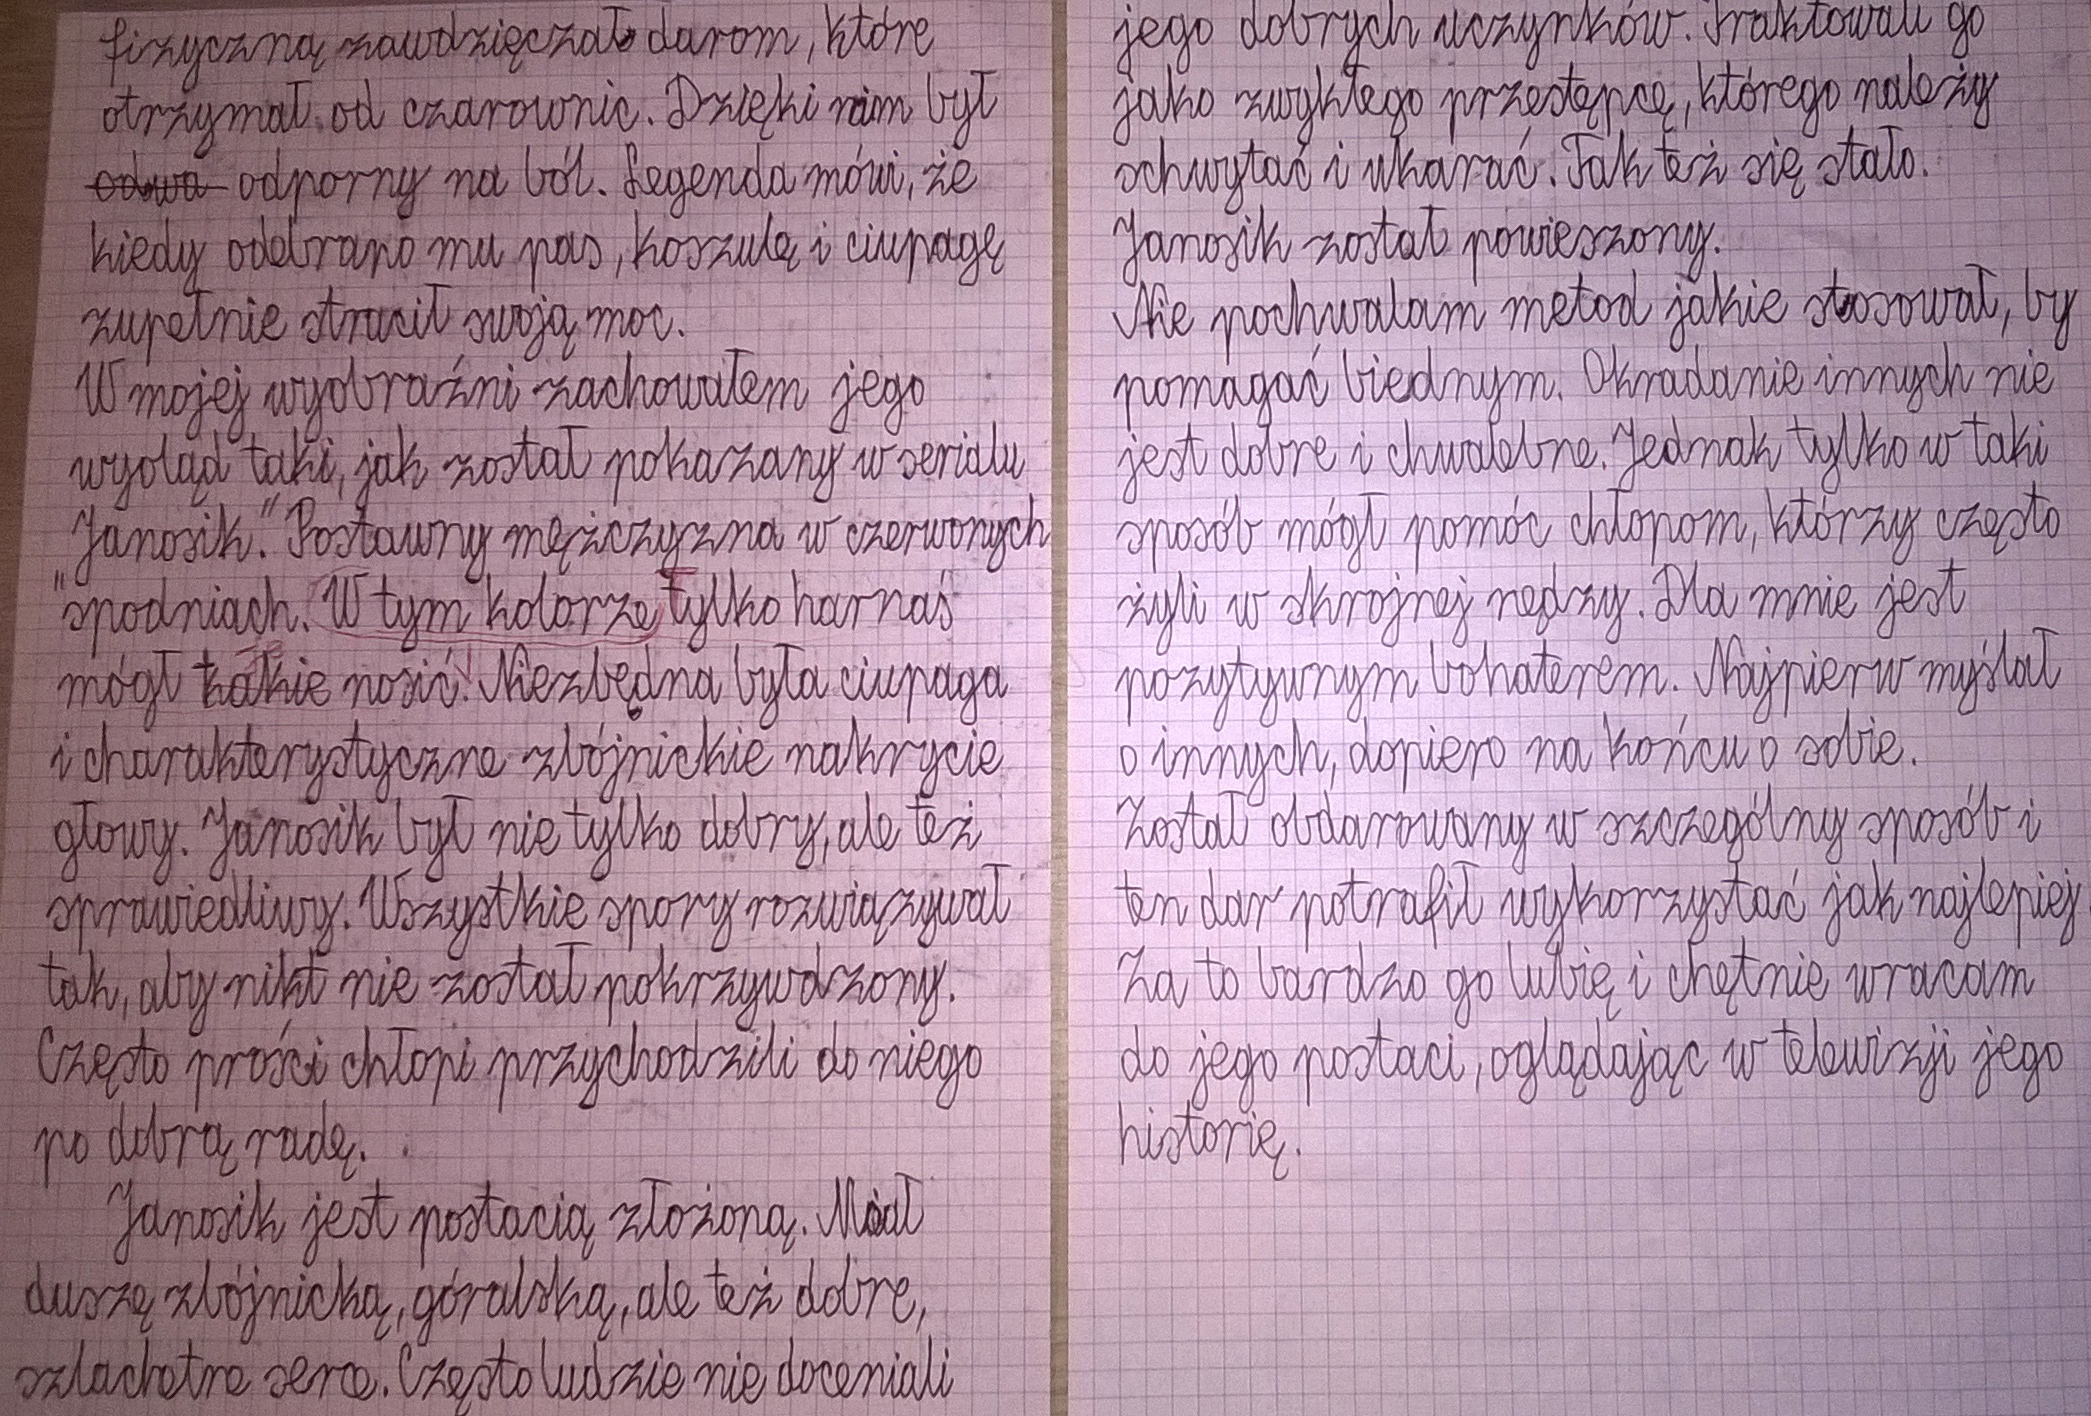 fizyczną zawdzięczał darom, które
otrzymał od czarownic. Dzięki nim był
odwa odporny na ból. Legenda mówi, że
kiedy odebrano mu pas, koszulę i ciupagę
zupełnie stracił swoją moc.
W mojej wyobraźni zachowałem jego
wygląd taki, jak został pokazany w serialu
Janosik." Postawny mężczyzna w czerwonych
"spodniach. W tym kolorze tylko harnaś
mógł takie nosić! Niezbędna była ciupaga
i charakterystyczne zbójnickie nakrycie
głowy. Janosik był nie tylko dobry, ale też
sprawiedliwy. Wszystkie spory rozwiązywał
tak, aby nikt nie został pokrzywdzony.
Często prości chłopi przychodzili do niego
po dobrą radę.
Janosik jest postacią złożoną. Miał
duszę zbójnicką, góralską, ale też dobre,
szlachetne serce. Często ludzie nie doceniali
jego dobrych uczynków. Traktowali go
jako zwykłego przestępcę, którego należy
schwytać i ukarać. Tak też się stało.
Janosik został powieszony.
Nie pochwalam metod jakie stosował, by
pomagać biednym. Okradanie innych nie
jest dobre i chwalebne. Jednak tylko w taki
sposób mógł pomóc chłopom, którzy często
żyli w skrojnej nędzy. Dla mnie jest
pozytywnym bohaterem. Najpierw myślał
o innych, dopiero na końcu o sobie.
Został obdarowany w szczególny sposób i
ten dar potrafił wykorzystać jak najlepiej.
Za to bardzo go lubię i chętnie wracam
do jego postaci, oglądając w telewizji jego
historię.